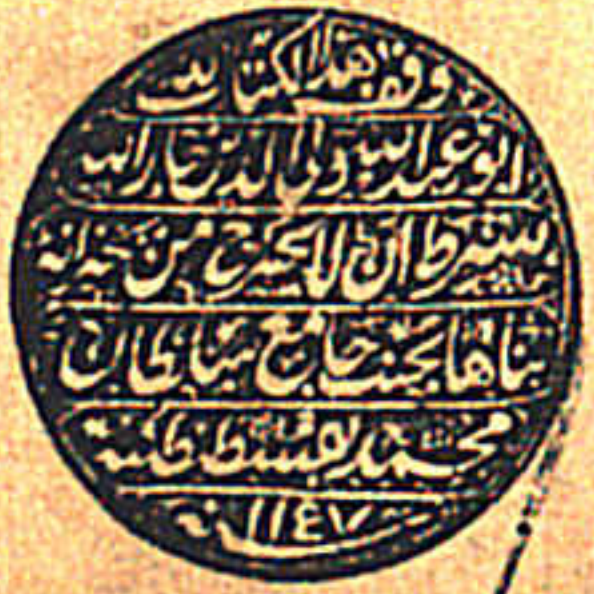 وقف هذا الكتاب لله
ابو عبد الله ولي الدين جار الله
بشرط ان لا يخرج من خزانة
بناها بجنب جامع سلطان
محمد بقسطنطينة
سنة ١١٤٧